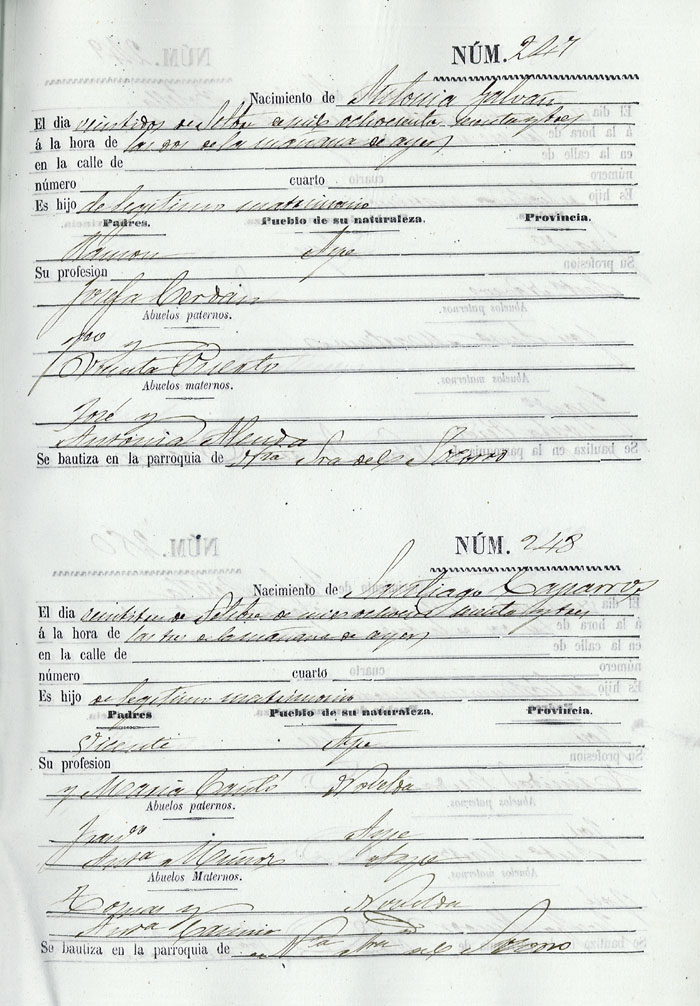 NÚM. 247
Nacimiento de Antonia Galvañ
El dia veintidos de Setbre de mil ochocientos sesenta y tres
á la hora de las dos de la mañana de ayer
en la calle de
número cuarto
Es hijo de legitimo matrimonio
Padres. Pueblo de su naturaleza. Provincia.
Ramon Aspe
Su profesion
Josefa Cerdán
Abuelos paternos.
y
Vicenta Puerto
Abuelos maternos.
José y
Antonia
Se bautiza en la parroquia de Ntra Sra del Socorro
NÚM. 248
Nacimiento de Santiago Caparros
El dia veintitres de Setbre de mil ochocientos sesenta y tres
á la hora de las tres de la mañana de ayer
en la calle de
número cuarto
Es hijo de legitimo matrimonio
Padres Pueblo de su naturaleza. Provincia.
Vicente Aspe
Su profesion
y Maria Cantó Novelda
Abuelos paternos.
Aspe
Muñoz Aspe
Abuelos Maternos.
Tomas y Novelda
Se bautiza en la parroquia de Nta Sra del Socorro